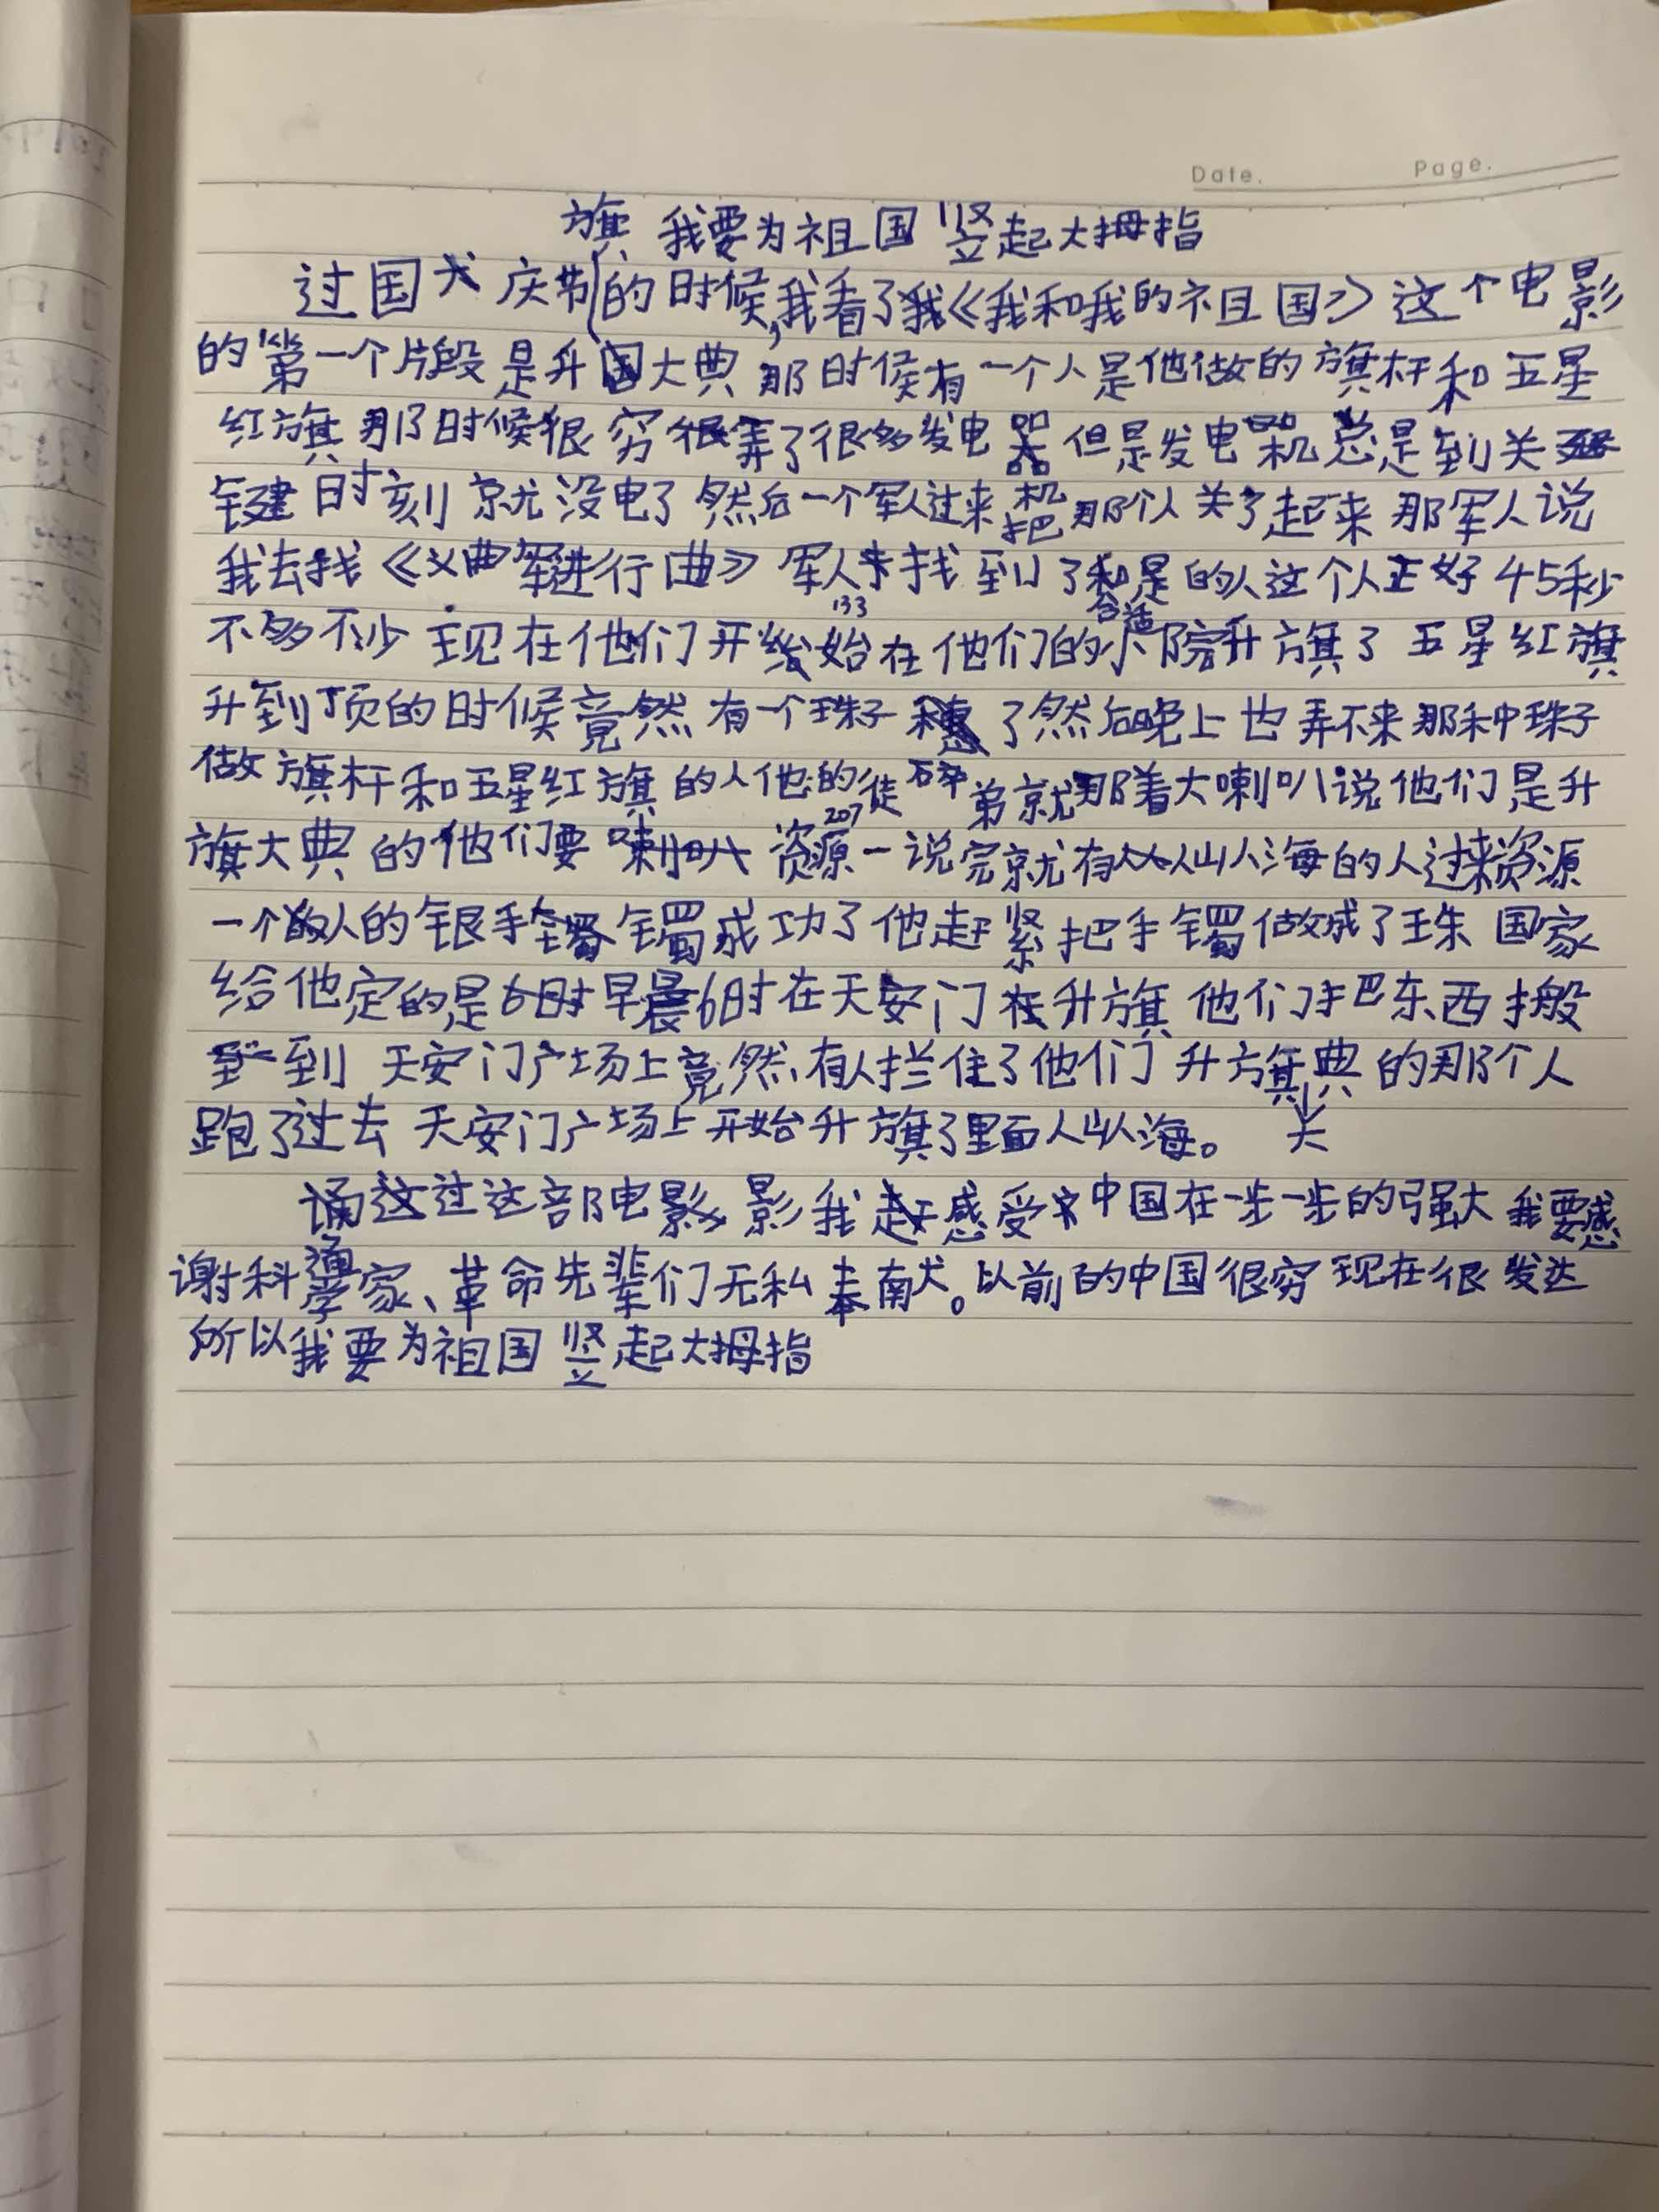 Date. Page.
旗 我要为祖国竖起大拇指
过国庆节的时候,我看了《我和我的祖国》这个电影
的第一个片段是升国大典 那时候有一个人是他做的旗杆和五星
红旗 那时候很穷 弄了很多发电器 但是发电机总是到关
键时刻就没电了 然后一个军人过来把那个人关了起来 那军人说
我去找《义军进行曲》军人找到了合适的人这个人正好45秒
133
不多不少 现在他们开始在他们的小院升旗了 五星红旗
升到顶的时候竟然有一个珠子碎了然后晚上也弄不来那种珠子
做旗杆和五星红旗的人他的徒弟就那着大喇叭说他们是升
207
旗大典的他们要资源一说完就有人山人海的人过来资源
一个人的银手镯成功了他赶紧把手镯做成了珠 国家
给他定的是早晨6时在天安门升旗 他们把东西搬
到天安门广场上竟然有人拦住了他们 升旗大典的那个人
跑了过去 天安门广场上开始升旗了里面人山人海。
通过这部电影我感受中国在一步一步的强大 我要感
谢科学家、革命先辈们无私奉献。以前的中国很穷 现在很发达
所以我要为祖国竖起大拇指